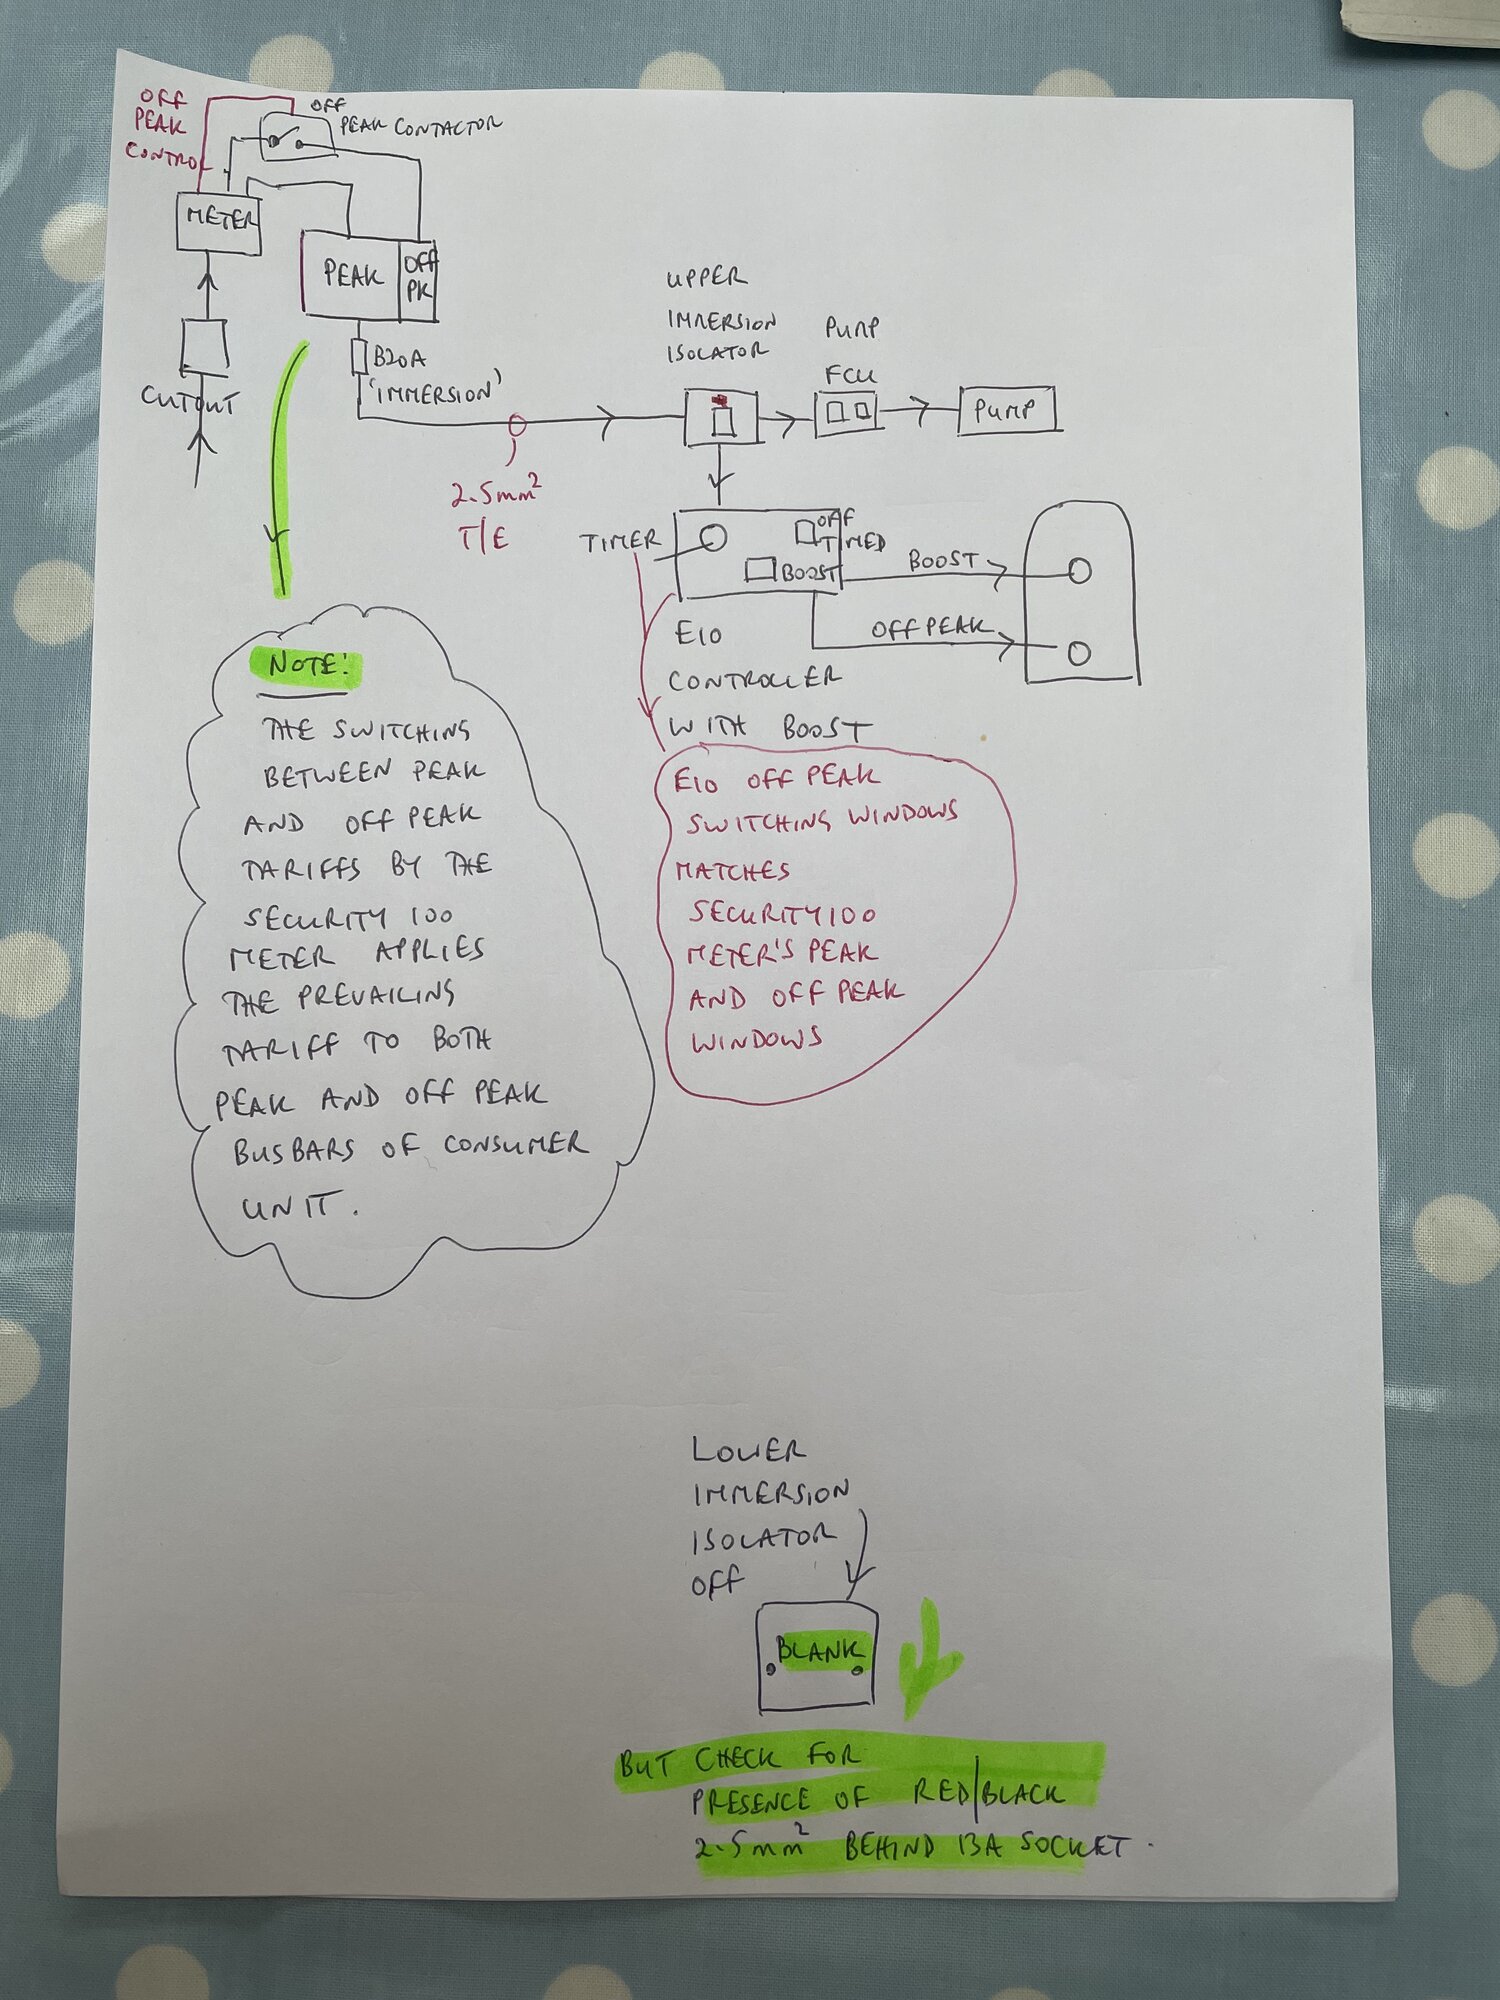 OFF
PEAK
CONTROL
OFF
PEAK CONTACTOR
METER
PEAK
OFF
PK
CUTOUT
B20A
'IMMERSION'
2.5mm²
T/E
UPPER
IMMERSION
ISOLATOR
PUMP
FCU
PUMP
TIMER
OFF
TIMED
BOOST
BOOST
OFF PEAK
E10
CONTROLLER
WITH BOOST
E10 OFF PEAK
SWITCHING WINDOWS
MATCHES
SECURITY100
METER'S PEAK
AND OFF PEAK
WINDOWS
NOTE:
THE SWITCHING
BETWEEN PEAK
AND OFF PEAK
TARIFFS BY THE
SECURITY 100
METER APPLIES
THE PREVAILING
TARIFF TO BOTH
PEAK AND OFF PEAK
BUSBARS OF CONSUMER
UNIT.
LOWER
IMMERSION
ISOLATOR
OFF
BLANK
BUT CHECK FOR
PRESENCE OF RED/BLACK
2.5mm² BEHIND 13A SOCKET.